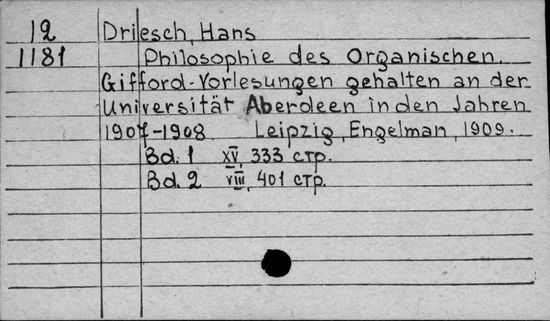 12 Driesch, Hans
1181 Philosophie des Organischen.
Gifford-Vorlesungen gehalten an der
Universität Aberdeen in den Jahren
1907-1908 Leipzig, Engelman, 1909.
Bd. 1 XV, 333 стр.
Bd. 2 VIII, 401 стр.